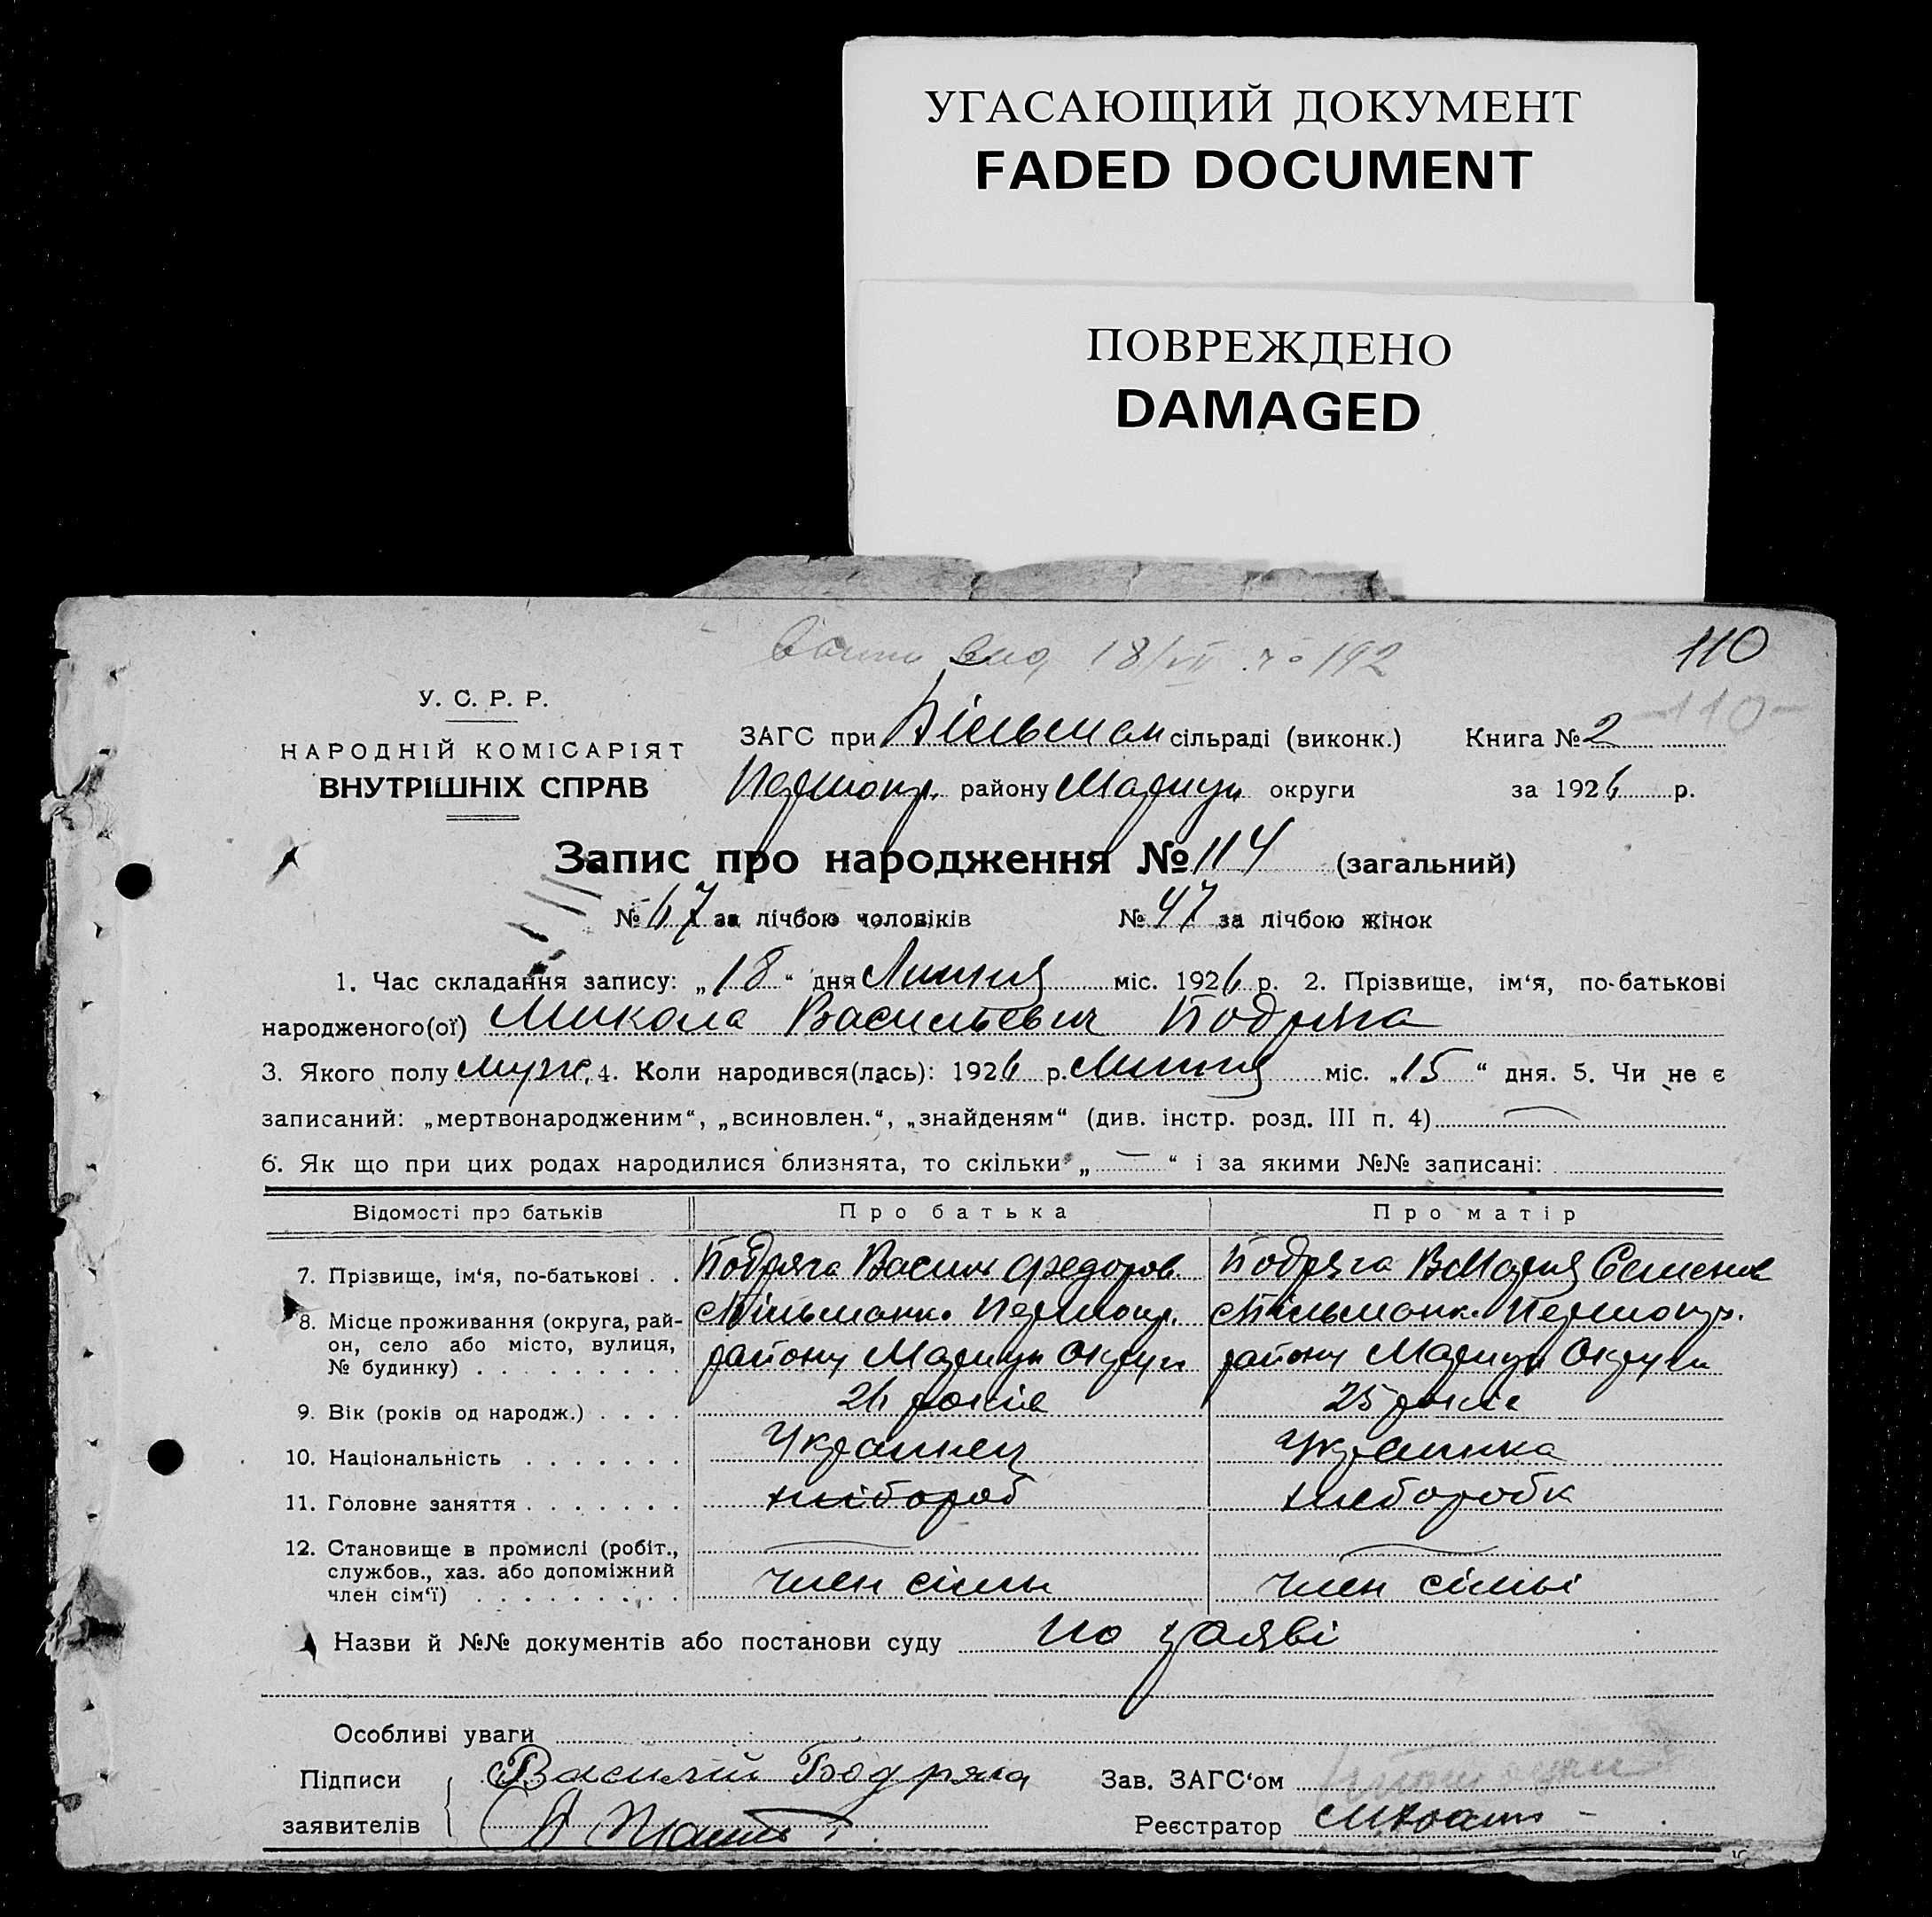 УГАСАЮЩИЙ ДОКУМЕНТ
FADED DOCUMENT
ПОВРЕЖДЕНО
DAMAGED
18/VII № 192
110
110
У. С. Р. Р.
НАРОДНІЙ КОМІСАРІЯТ
ВНУТРІШНІХ СПРАВ
ЗАГС при сільраді (виконк.) Книга № 2
району Мариуп округи за 1926 р.
Запис про народження № 114 (загальний)
№ 67 за лічбою чоловіків № 47 за лічбою жінок
1. Час складання запису: „18“ дня Липня міс. 1926 р. 2. Прізвище, ім‘я, по-батькові
народженого(ої) Микола Васильевич Бодряга
3. Якого полу муж. 4. Коли народився(лась): 1926 р. Липня міс. „15“ дня. 5. Чи не є
записаний: „мертвонародженим“, „всиновлен.“, „знайденям“ (див. інстр. розд. III п. 4)
6. Як що при цих родах народилися близнята, то скільки „—“ і за якими №№ записані:
Відомості про батьків Про батька Про матір
7. Прізвище, ім‘я, по-батькові . . Бодряга Васил Федоров. Бодряга Мария Семенов
8. Місце проживання (округа, рай-
он, село або місто, вулиця,
№ будинку) . . . . . . . . . району Мариуп Округи району Мариуп Округи
9. Вік (років од народж.) . . . . 26 років 25 років
10. Національність . . . . . . . Украинец Украинка
11. Головне заняття . . . . . . . хлібороб хлеборобк
12. Становище в промислі (робіт.,
службов., хаз. або допоміжний
член сім‘ї) . . . . . . . . . член сімьи член сімьі
Назви й №№ документів або постанови суду по заяві
Особливі уваги
Підписи Василий Бодряга Зав. ЗАГС‘ом
заявителів Реєстратор